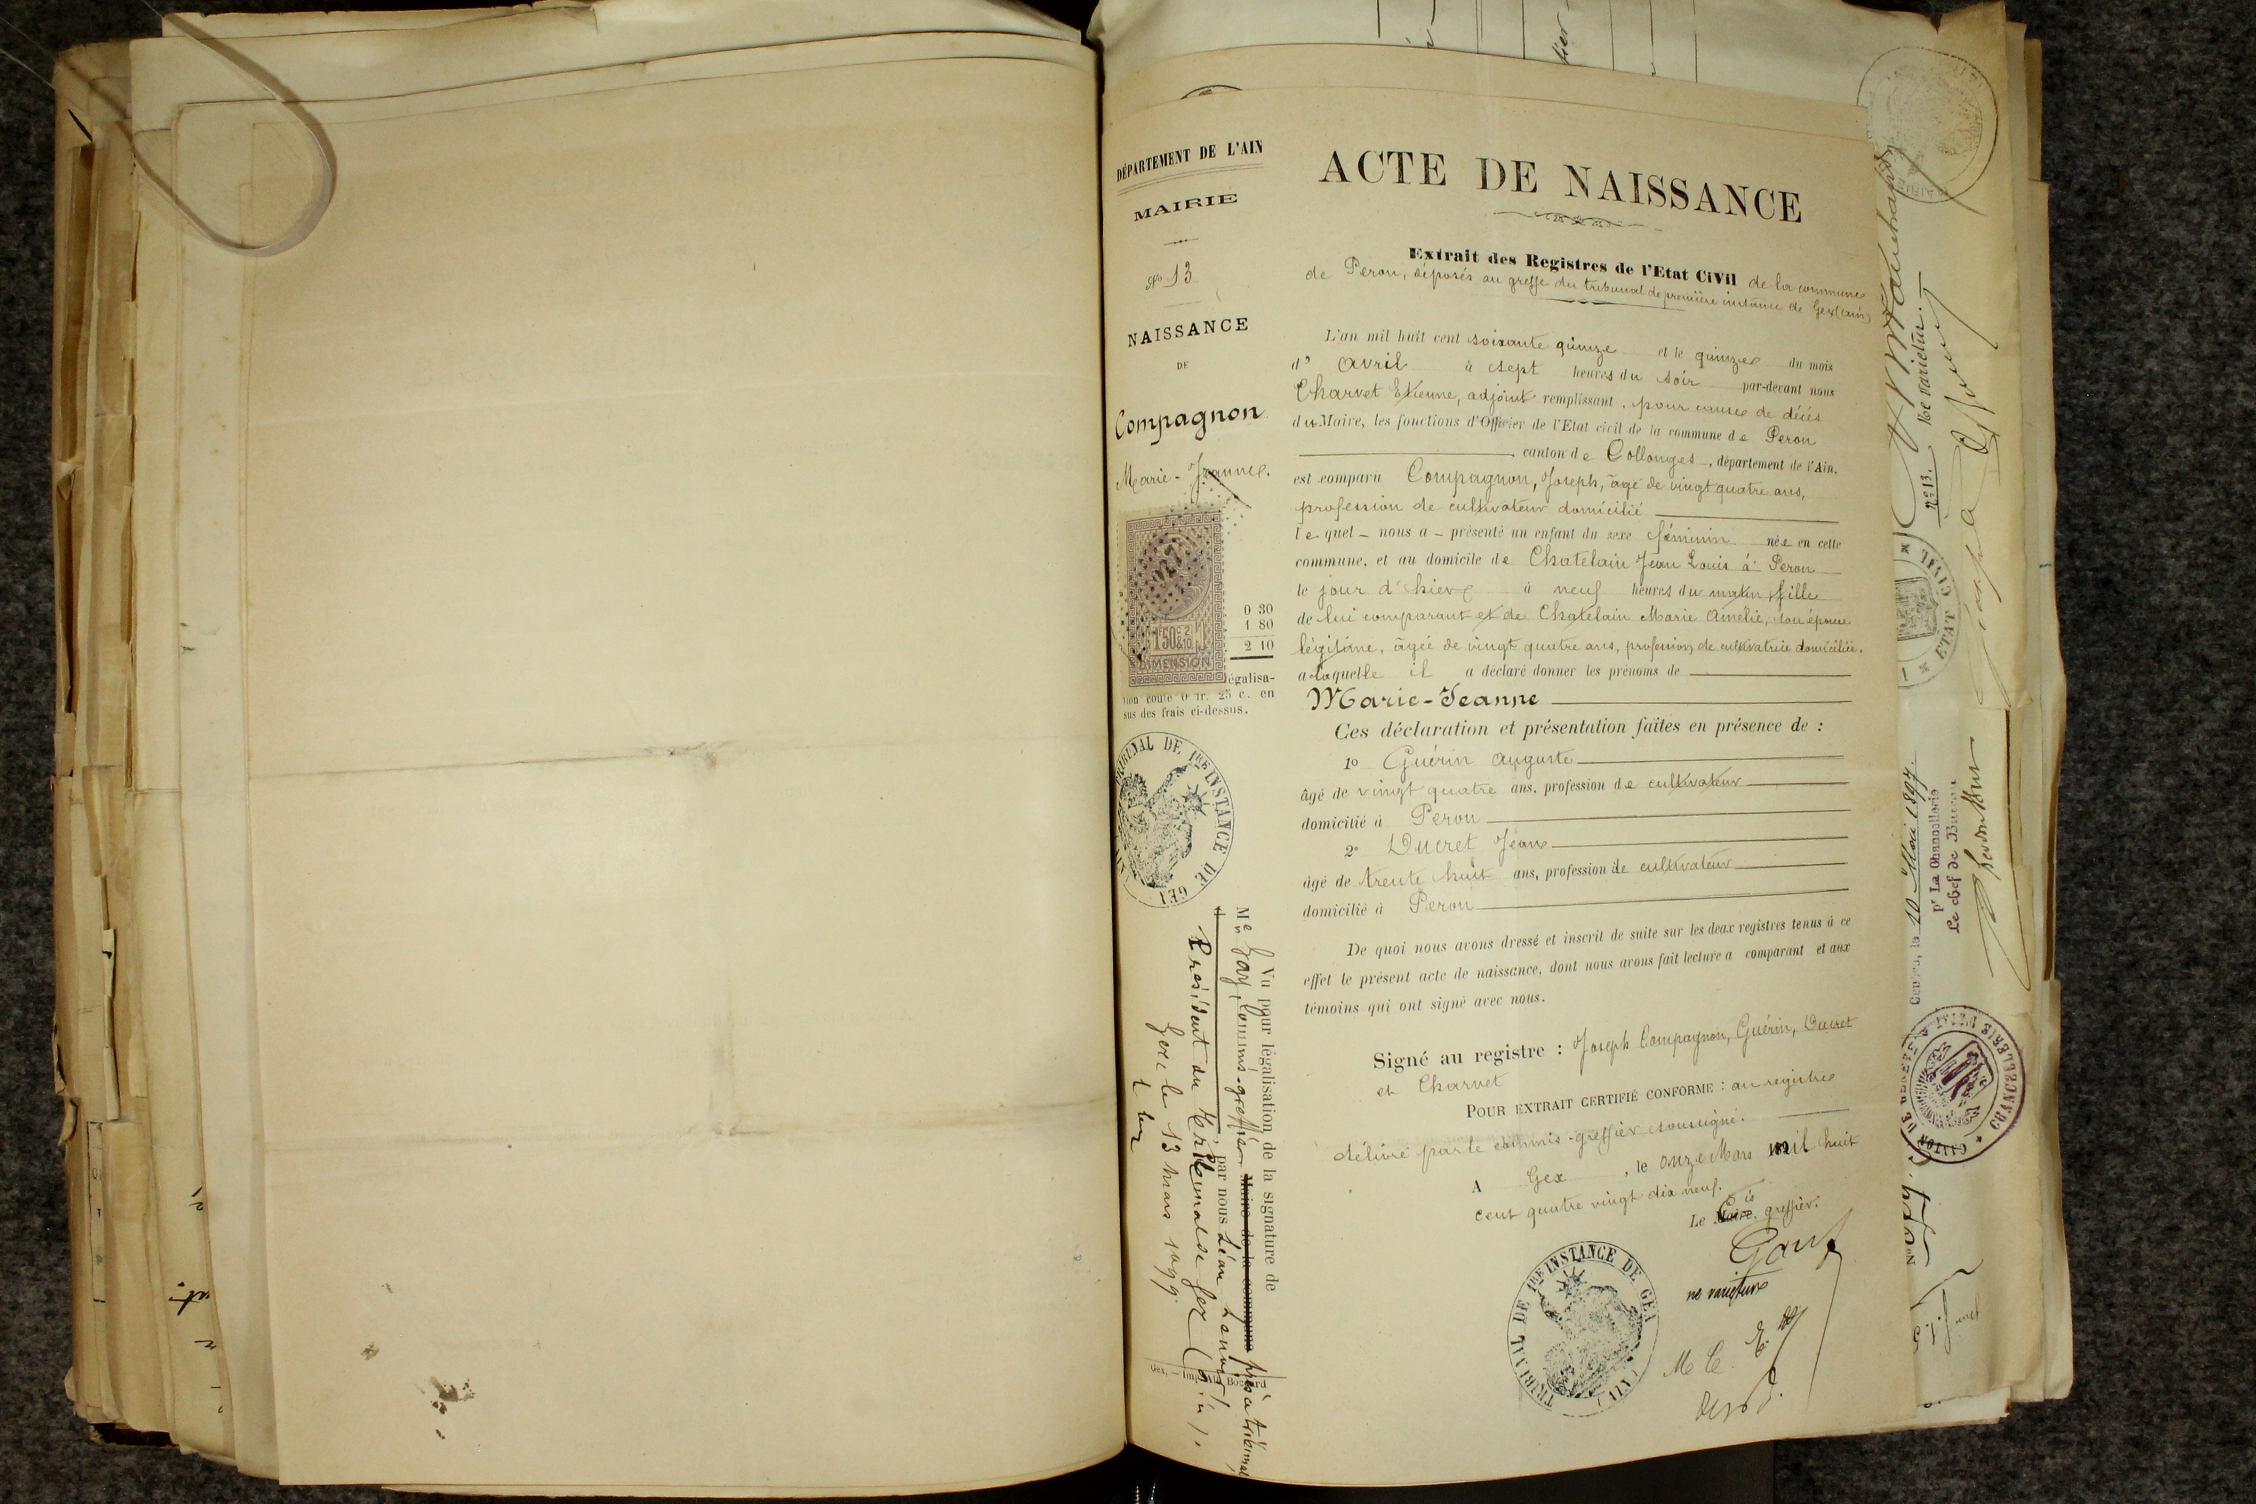 DÉPARTEMENT DE L'AIN
MAIRIE
No 13
NAISSANCE
DE
Compagnon
Marie-Jeanne.
927
1F50c 2/10
DIMENSION
0 30
1 80
2 10
égalisa-
tion coûte 0 fr. 25 c. en
sus des frais ci-dessus.
TRIBUNAL DE 1RE INSTANCE DE GEX
Vu pour légalisation de la signature de
Me Gay, commis-greffier Maire de la commune près a tribunal,
par nous Léon
Président du tribunal de Gex (Ain).
Gex le 13 mars 1899
ACTE DE NAISSANCE
Extrait des Registres de l'Etat CiVil de la commune
de Peron, déposés au greffe du tribunal de première instance de Gex (ain)
L'an mil huit cent soixante quinze et le quinze du mois
d' avril à sept heures du soir par-devant nous
Charvet Etienne, adjoint remplissant, pour cause de décès
du Maire, les fonctions d'Officier de l'Etat civil de la commune de Peron
canton de Collonges, département de l'Ain,
est comparu Compagnon, Joseph, âgé de vingt quatre ans,
profession de cultivateur domicilié
lequel - nous a - présenté un enfant du sexe féminin née en cette
commune, et au domicile de Chatelain Jean Louis à Peron
le jour d'hier à neuf heures du matin, fille
de lui comparant et de Chatelain Marie Amélie, son épouse
légitime, âgée de vingt quatre ans, profession de cultivatrice domiciliée.
a laquelle il a déclaré donner les prénoms de
Marie-Jeanne
Ces déclaration et présentation faites en présence de :
1o Guérin Auguste
âgé de vingt quatre ans, profession de cultivateur
domicilié à Peron
2o Ducret Jean
âgé de trente huit ans, profession de cultivateur
domicilié à Peron
De quoi nous avons dressé et inscrit de suite sur les deux registres tenus à ce
effet le présent acte de naissance, dont nous avons fait lecture a comparant et aux
témoins qui ont signé avec nous.
Signé au registre : Joseph Compagnon, Guérin, Ducret
et Charvet
POUR EXTRAIT CERTIFIÉ CONFORME : au registre
délivré par le commis-greffier soussigné.
A Gex, le onze Mars mil huit
cent quatre vingt dix neuf.
Le Maire. Cis greffier.
Gay
TRIBUNAL DE 1RE INSTANCE DE GEX (AIN)
ne varietur
No 13. Ne varietur.
ETAT CIVIL
10 Mai 1897.
pr La Chancellerie
Le chef de Bureau
CHANCELLERIE
CANTON